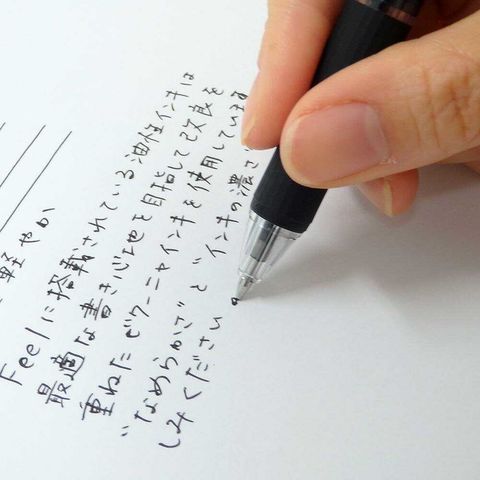 軽やか
Feelに搭載されている油性インキは
最適な書き心地を目指して改良を
重ねたビクーニャインキを使用しています
“なめらかさ”と“インキの濃さ
しみください。